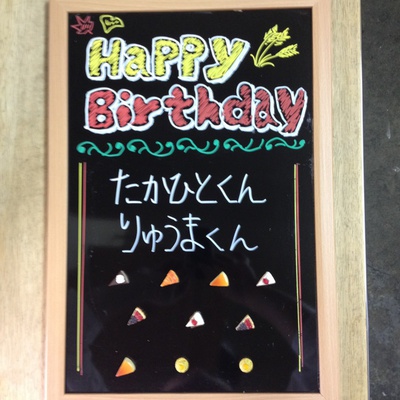 Happy
Birthday
たかひとくん
りゅうまくん